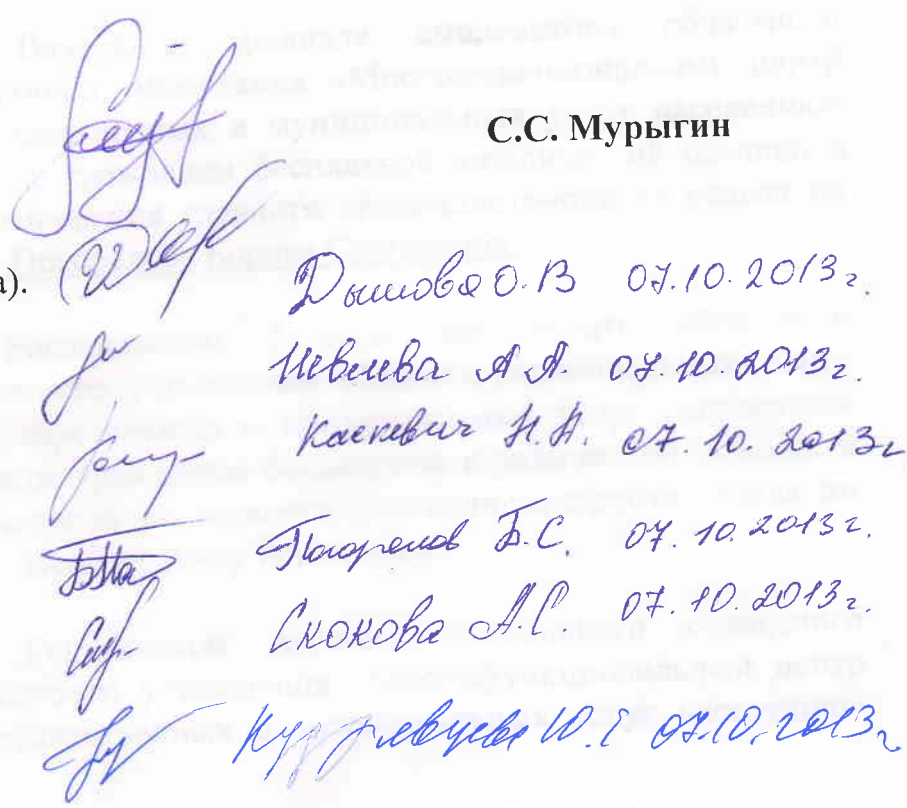 С.С. Мурыгин
а).
Дышова О.В 07.10.2013г.
Невлева А.А. 07.10.2013г.
Каскевич Н.Н. 07.10.2013г
Погорелов Б.С. 07.10.2013г.
Скокова А.С 07.10.2013г.
Ю. 07.10.2013г